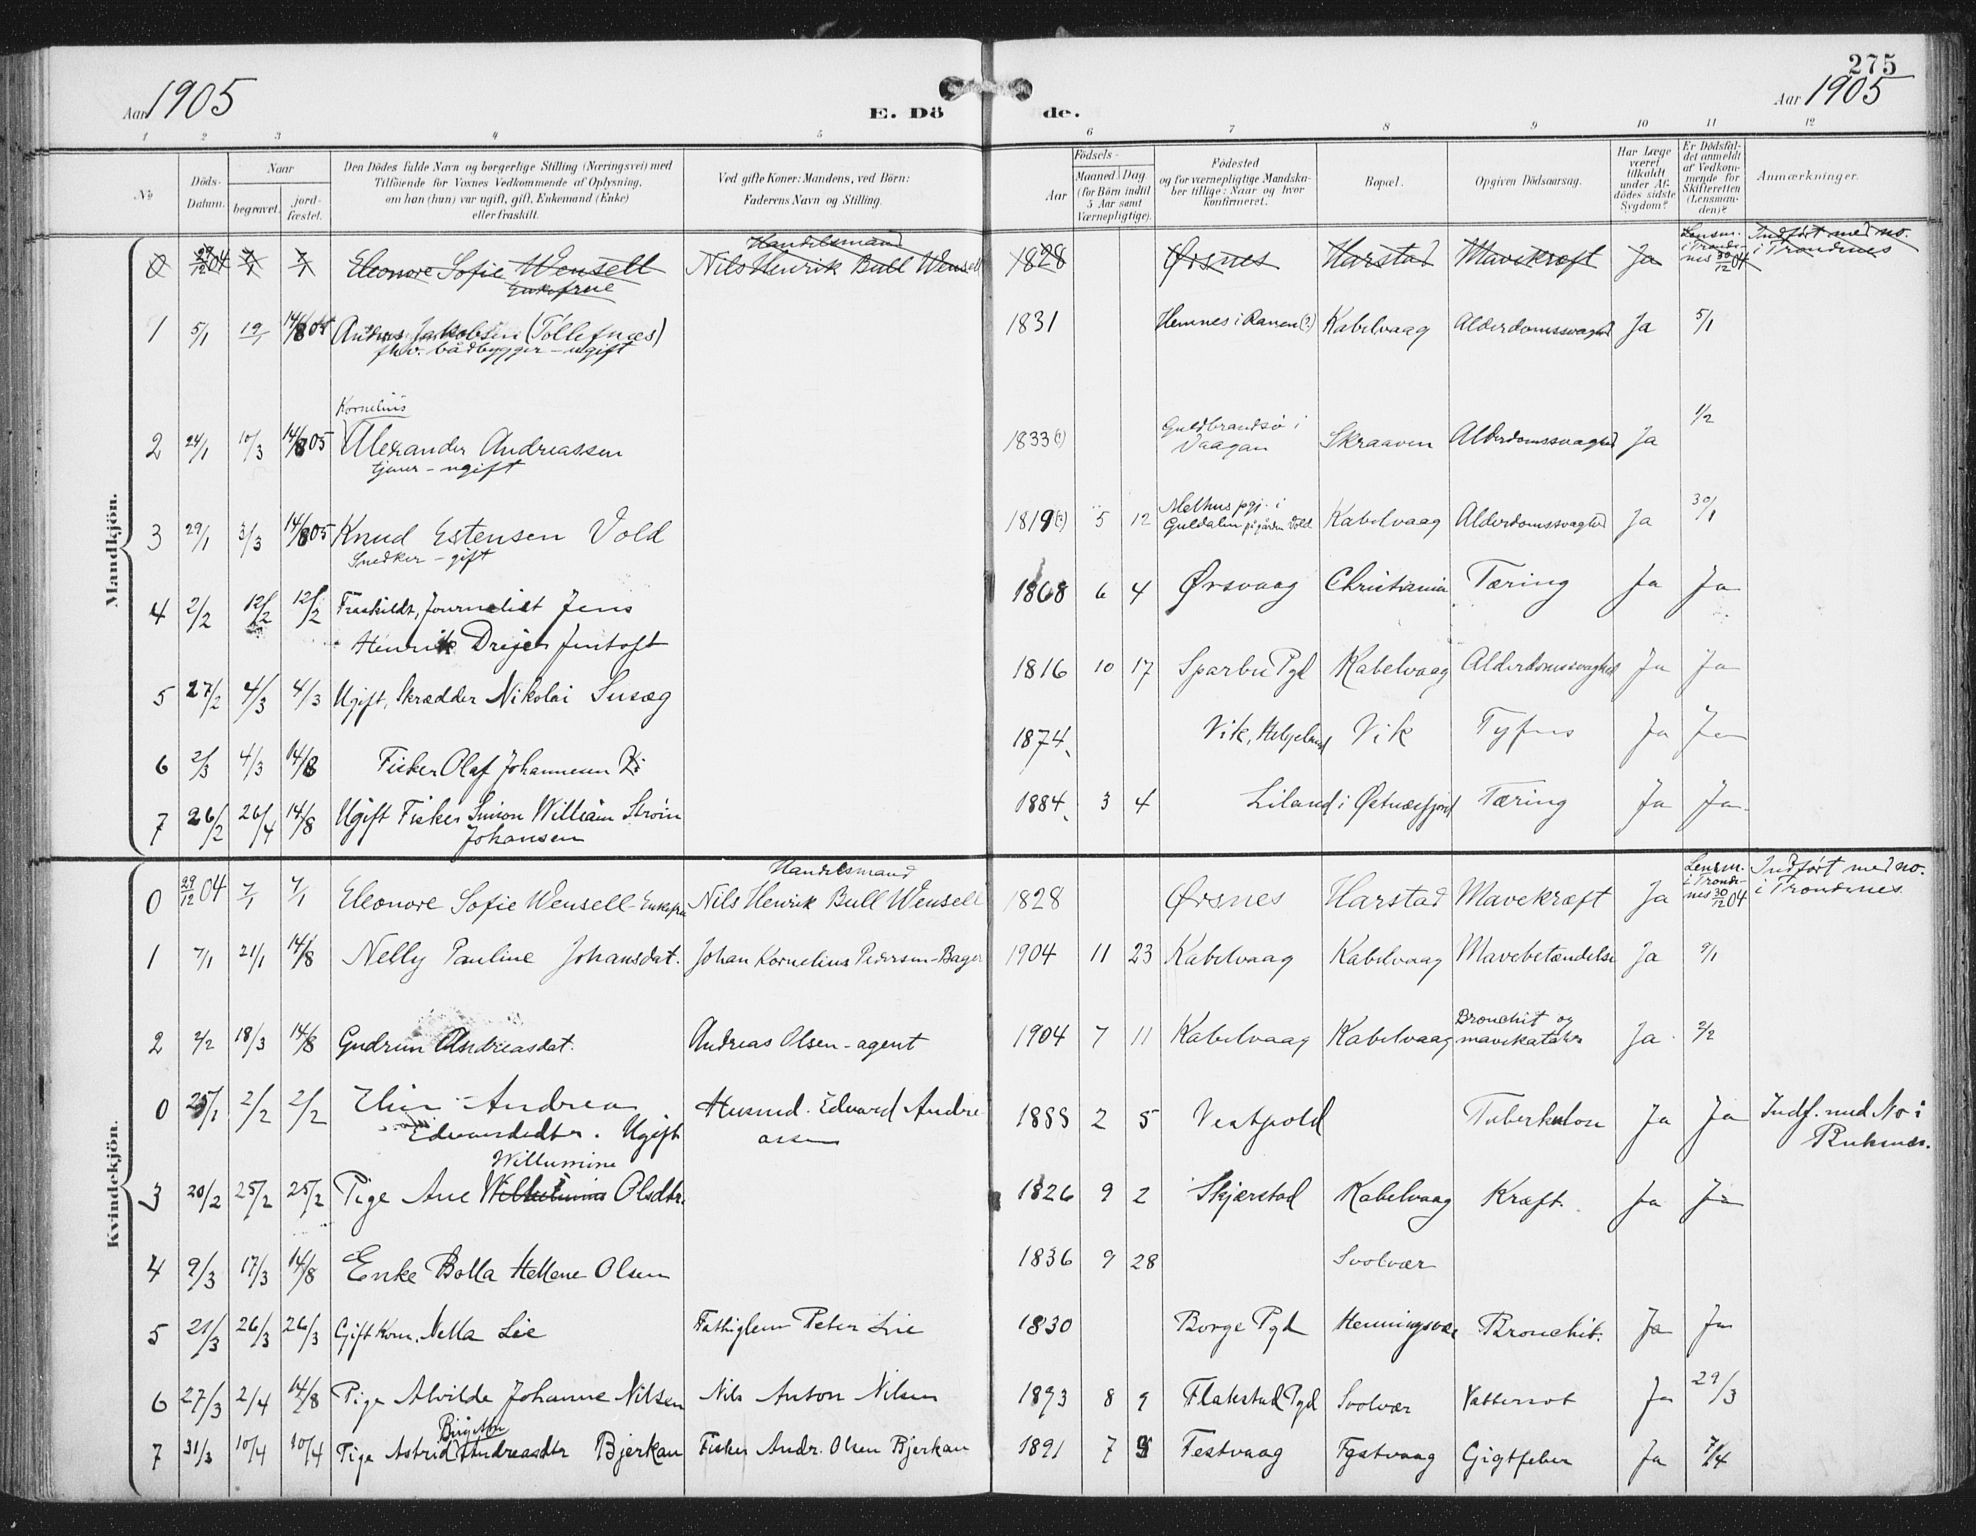 275
Aar 1905
E. Dö de.
Aar 1905
1 2 3 4 5 6 7 8 9 10 11 12
No
Döds-Datum.
Naar
begravet.
jord-fæstet.
Den Dödes fulde Navn og borgerlige Stilling (Næringsvei) med
Tilföiende for Voxnes Vedkommende af Oplysning,
om han (hun) var ugift, gift, Enkemand (Enke)
eller fraskilt.
Ved gifte Koner: Mandens, ved Börn:
Faderens Navn og Stilling.
Födsels-
Aar
Maaned. Dag.
(for Börn indtil
5 Aar samt
Værnepligtige).
Födested
og for værnepligtige Mandska-
ber tillige: Naar og hvor
konfirmeret.
Bopæl.
Opgiven Dödsaarsag.
Har Læge
været
tilkaldt
under Af-
dödes sidste
Sygdom?
Er Dödsfal-
det anmeldt
af Vedkom-
mende for
Skifteretten
(Lensman-
den)?
Anmærkninger.
Mandkjön.
0 29/12 04 7/1 7/1 Eleonore Sofie Wensell Enkefrue Handelsmand Nils Henrik Bull Wensell 1828 Ørsnes Harstad Mavekræft Ja Lensm. i Tronde-nes 30/12 04 Indført med no. i Trondenes
1 5/1 19/1 14/8 05 Jakobsen (Tollefnæs) 1831 Hemnes i Ranen (?) Kabelvaag Alderdomssvaghed Ja 5/1
fhv. bådbygger - ugift
Kornelius
2 24/1 10/3 14/8 05 Alexander Andreassen 1833 (?) Guldbrandsø i Vaagan Skraaven Alderdomssvaghed Ja 1/2
tjener - ugift
3 29/1 3/3 14/8 05 Knud Estensen Vold 1819 (?) 5 12 Melhus pgj. i Guldalen på gården Vold Kabelvaag Alderdomssvaghed Ja 30/1
Snedker - gift
4 2/2 12/2 12/2 Fraskildt, Journalist Jens 1868 6 4 Ørsvaag Christiania Tæring Ja Ja
Henrik Dreyer Jentoft
5 27/2 4/3 4/3 Ugift, Skrædder Nikolai Susæg 1816 10 17 Sparbu Pgd Kabelvaag Alderdomssvaghed Ja Ja
6 2/3 4/3 14/8 Fisker Olaf Johannesen 1874 Vik, Helgeland Vik Tyfus Ja Ja
7 26/2 26/4 14/8 Ugift Fisker Simon William Strøm 1884 3 4 Liland i Østnæsfjord Tæring Ja Ja
Johansen
Kvindekjön.
0 29/12 04 7/1 7/1 Eleonore Sofie Wensell - Enkefrue Handelsmand Nils Henrik Bull Wensell 1828 Ørsnes Harstad Mavekræft Ja Lensm. i Tronde-nes 30/12 04 Indført med no. i Trondenes.
1 7/1 21/1 14/8 Nelly Pauline Johansdat. Johan Kornelius Pedersen - Bager 1904 11 23 Kabelvaag Kabelvaag Mavebetændelse Ja 9/1
2 2/2 18/3 14/8 Gudrun Andreasdat. Andreas Olsen - agent 1904 7 11 Kabelvaag Kabelvaag Bronchit og mavekatahr Ja 2/2
0 25/1 2/2 2/2 Elin Andrea Husmd. Edvard Andre- 1888 2 5 Vestpold Tuberkulose Ja Ja Indf. med No i
Edvardsdtr. Ugift assen Buksnæs.
Willumine
3 20/2 25/2 25/2 Pige Ane Wilhelmina Olsdtr. 1826 9 2 Skjærstad Kabelvaag Kræft. Ja Ja
4 9/3 17/3 14/8 Enke Bolla Hellene Olsen 1836 9 28 Svolvær
5 21/3 26/3 26/3 Gift Kone Nella Lie Fattiglem Peter Lie 1830 Borge Pgd Henningsvær Bronchit. Ja Ja
6 27/3 2/4 14/8 Pige Alvilde Johanne Nilsen Nils Anton Nilsen 1893 8 9 Flakstad Pgd Svolvær Vattersot Ja 29/3
Birgitte
7 31/3 10/4 10/4 Pige Astrid Andreasdtr Bjerkan Fisker Andr. Olsen Bjerkan 1891 7 Festvaag Festvaag Gigtfeber Ja 7/4